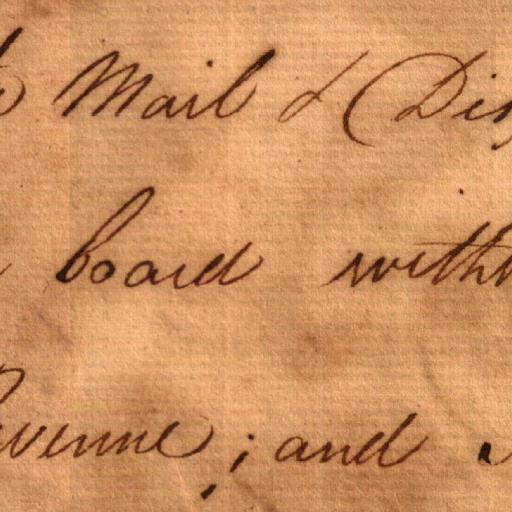 Mail & Dis
board with
venue; and